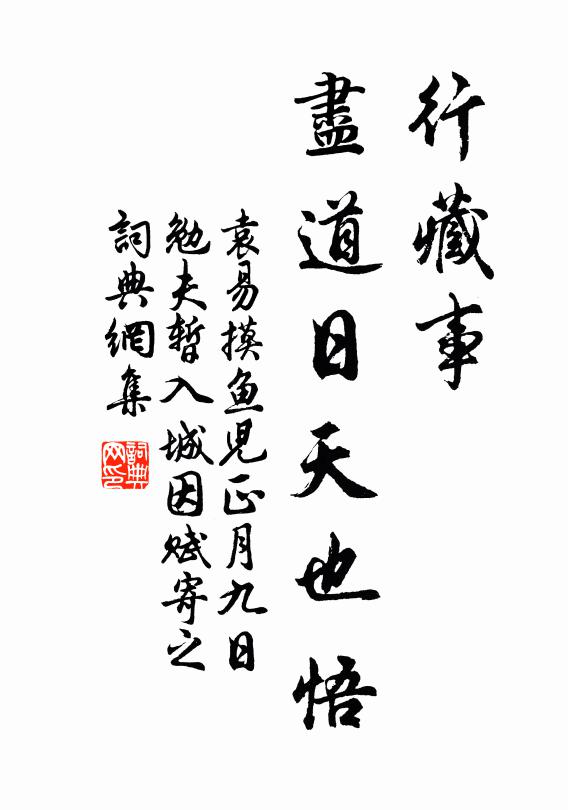 行藏事
盡道日天也悟
袁易摸魚児正月九日
勉夫暫入城因賦寄之
詞典網集
詞典网印